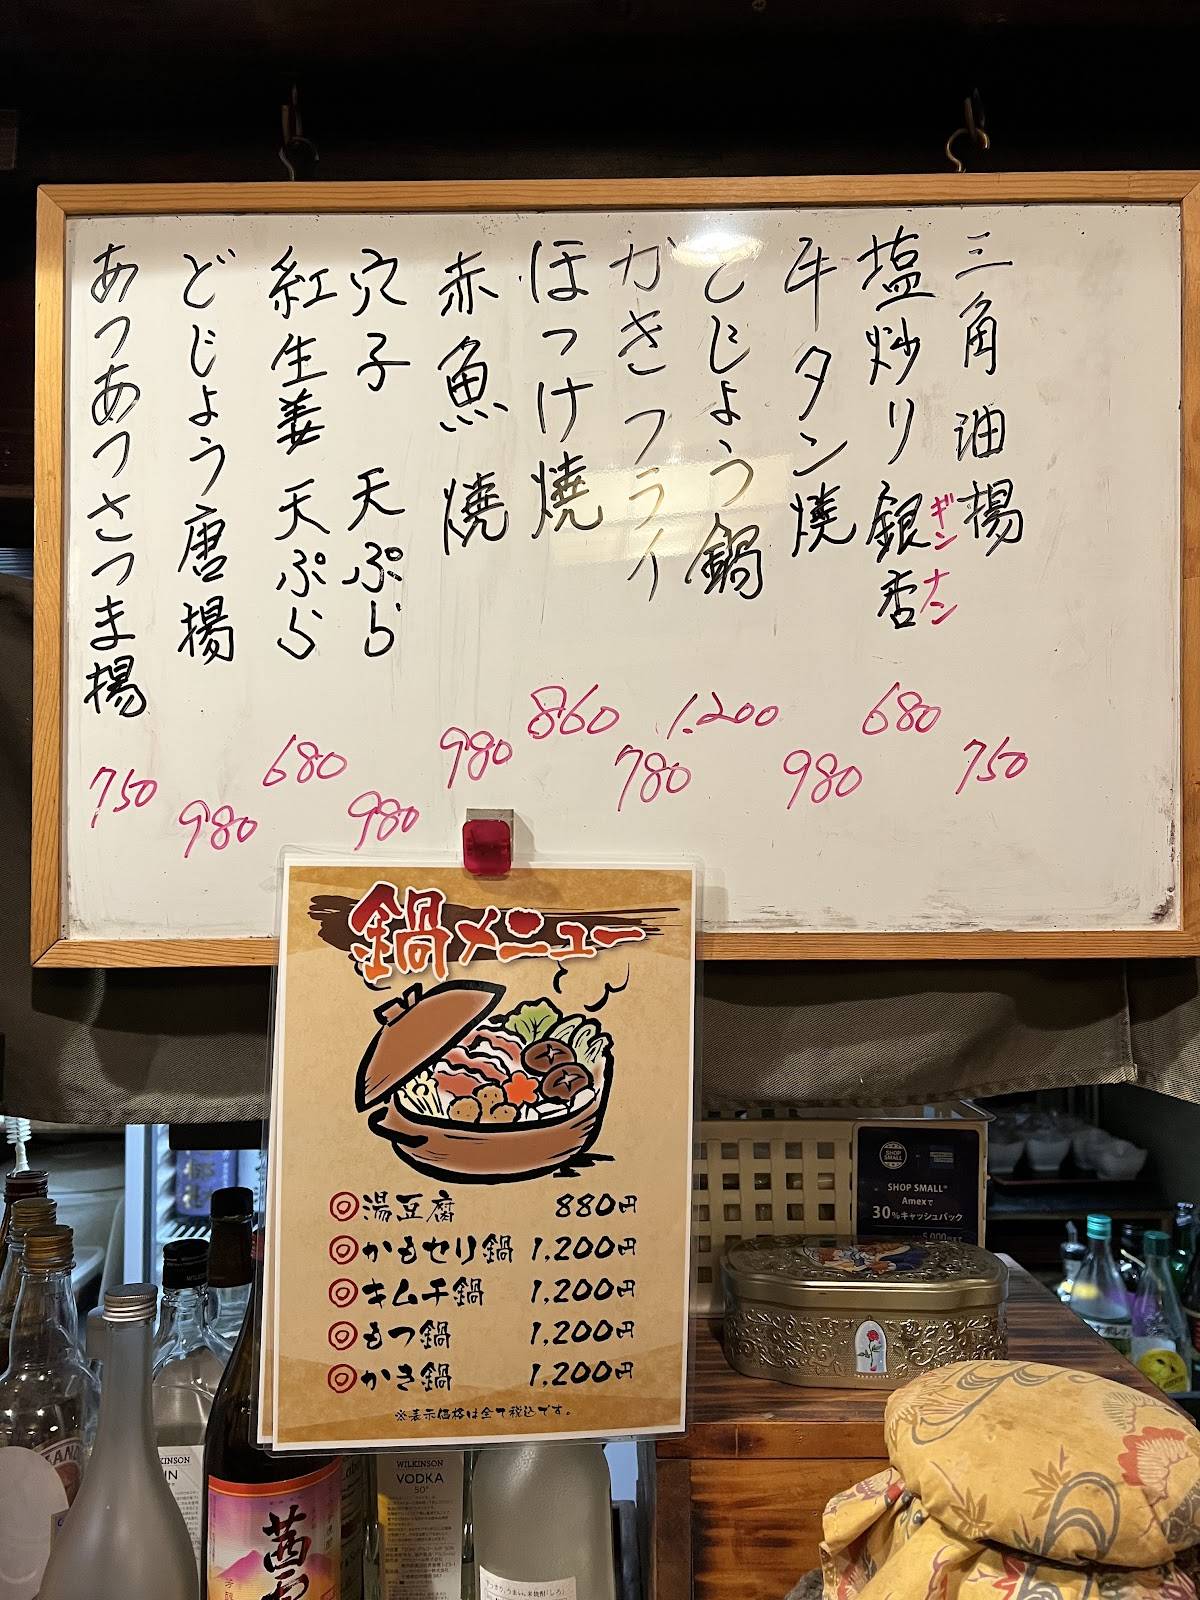 三角油揚
750
塩炒り銀杏
ギンナン
680
牛タン焼
980
どじょう鍋
1.200
かきフライ
780
ほっけ焼
860
赤魚焼
980
穴子 天ぷら
980
紅生姜天ぷら
680
どじょう唐揚
980
あつあつさつま揚
750
鍋メニュー
◎湯豆腐 880円
◎かもせり鍋 1,200円
◎キムチ鍋 1,200円
◎もつ鍋 1,200円
◎かき鍋 1,200円
※表示価格は全て税込です。
SHOP SMALL
SHOP SMALL
Amexで
30%キャッシュバック
WILKINSON
VODKA
50°
茜